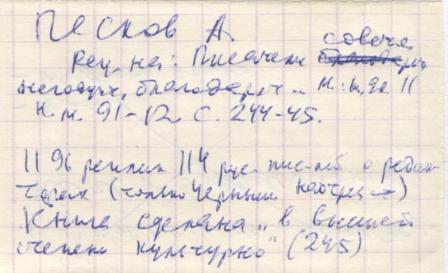 Песков А.
Рец. на: Писатели советуются,
негодуют, благодарят... М.: Кн., 90
Н.м. 91-12. С. 244-45.
1196 реплик 114 рус. пис-лей о редак-
торах (только Черныш
Книга сделана „в высшей
степени культурно" (245)